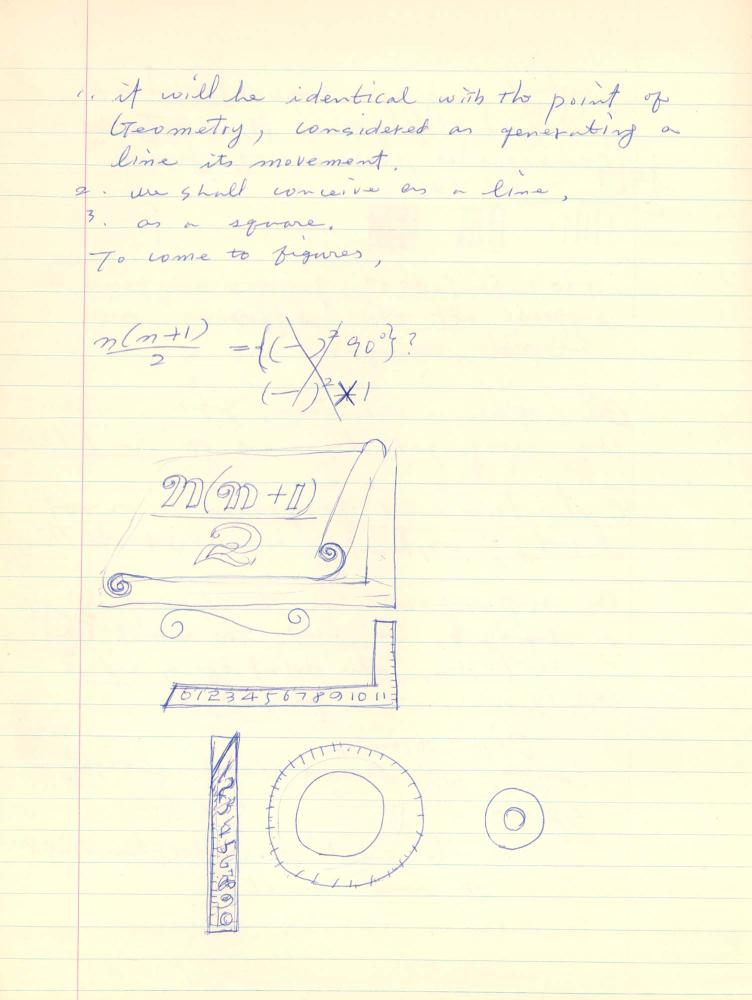 1. it will be identical with the point of
Geometry, considered as generating a
line its movement.
2. we shall conceive as a line,
3. as a square.
To come to figures,
n(n+1)/2 = {(—)² 90°}?
(—)² × 1
n(n+1)
2
0 1 2 3 4 5 6 7 8 9 10 11
1 2 3 4 5 6 7 8 9